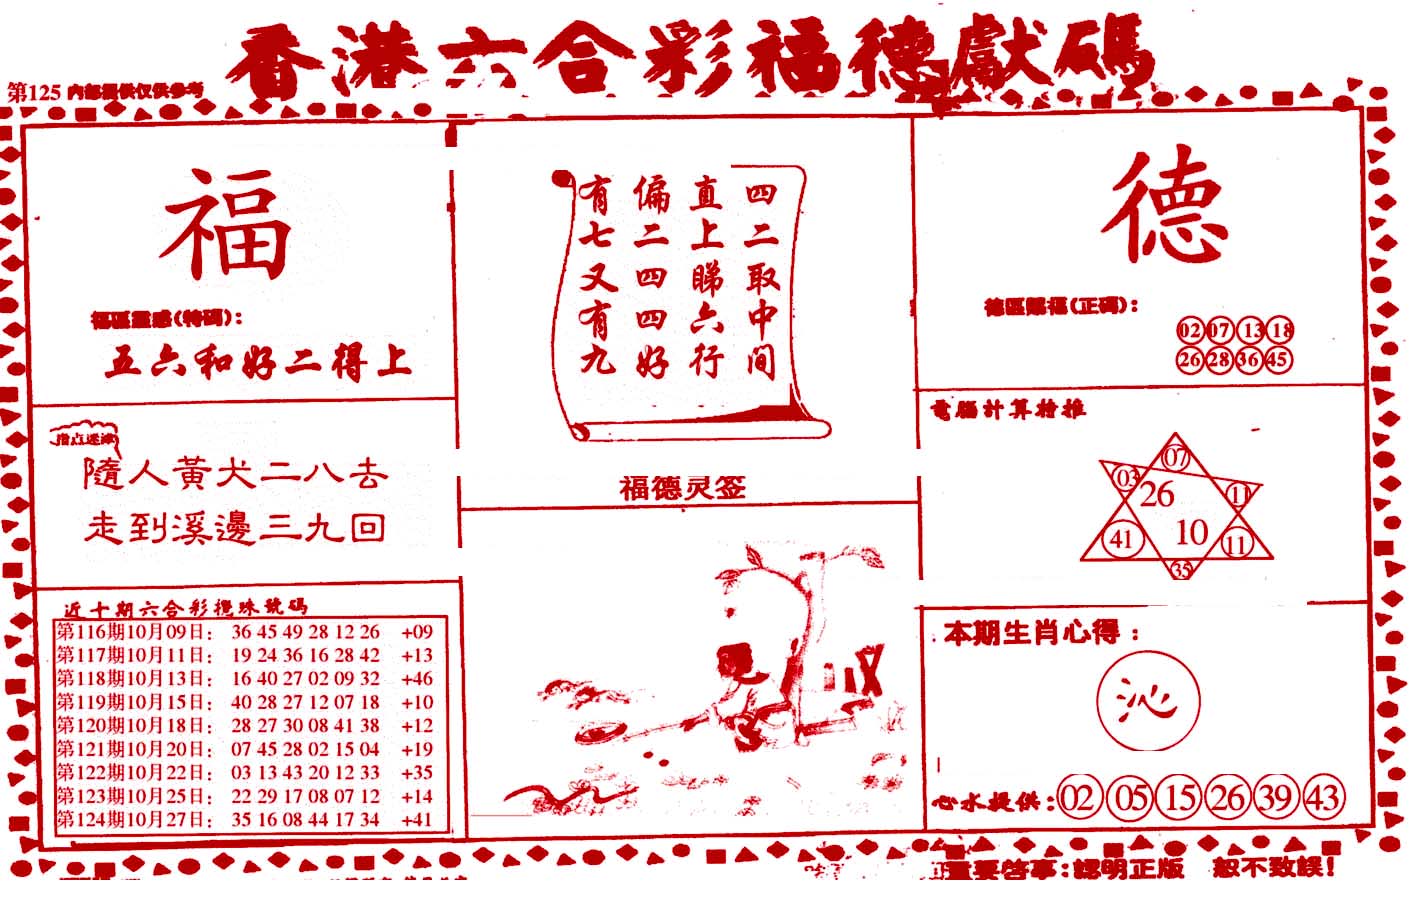 香港六合彩福德獻碼
第125 内部提供仅供参考
福
福區靈感(特碼):
五六和好二得上
指点迷津
隨人黃犬二八去
走到溪邊三九回
近十期六合彩攪珠號碼
第116期10月09日: 36 45 49 28 12 26 +09
第117期10月11日: 19 24 36 16 28 42 +13
第118期10月13日: 16 40 27 02 09 32 +46
第119期10月15日: 40 28 27 12 07 18 +10
第120期10月18日: 28 27 30 08 41 38 +12
第121期10月20日: 07 45 28 02 15 04 +19
第122期10月22日: 03 13 43 20 12 33 +35
第123期10月25日: 22 29 17 08 07 12 +14
第124期10月27日: 35 16 08 44 17 34 +41
四二取中间
直上睇六行
偏二四四好
有七又有九
福德灵签
德
德區賜福(正碼):
02 07 13 18
26 28 36 45
電腦計算檢推
07
03 26 11
41 10 11
35
本期生肖心得:
沁
心水提供: 02 05 15 26 39 43
重要啓事:認明正版 恕不致誤!